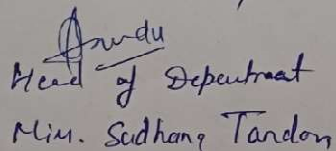 Head of Depeutment
Mim. Sadhana Tandon